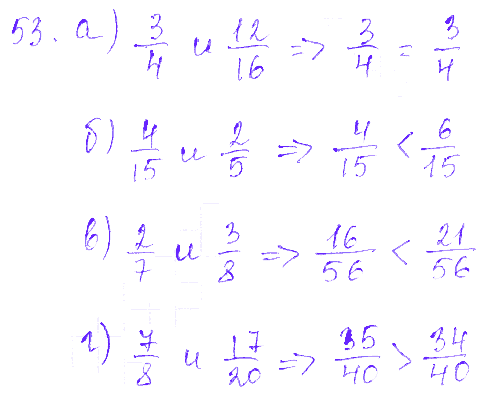 53. а) 3/4 и 12/16 => 3/4 = 3/4
б) 4/15 и 2/5 => 4/15 < 6/15
в) 2/7 и 3/8 => 16/56 < 21/56
г) 7/8 и 17/20 => 35/40 > 34/40